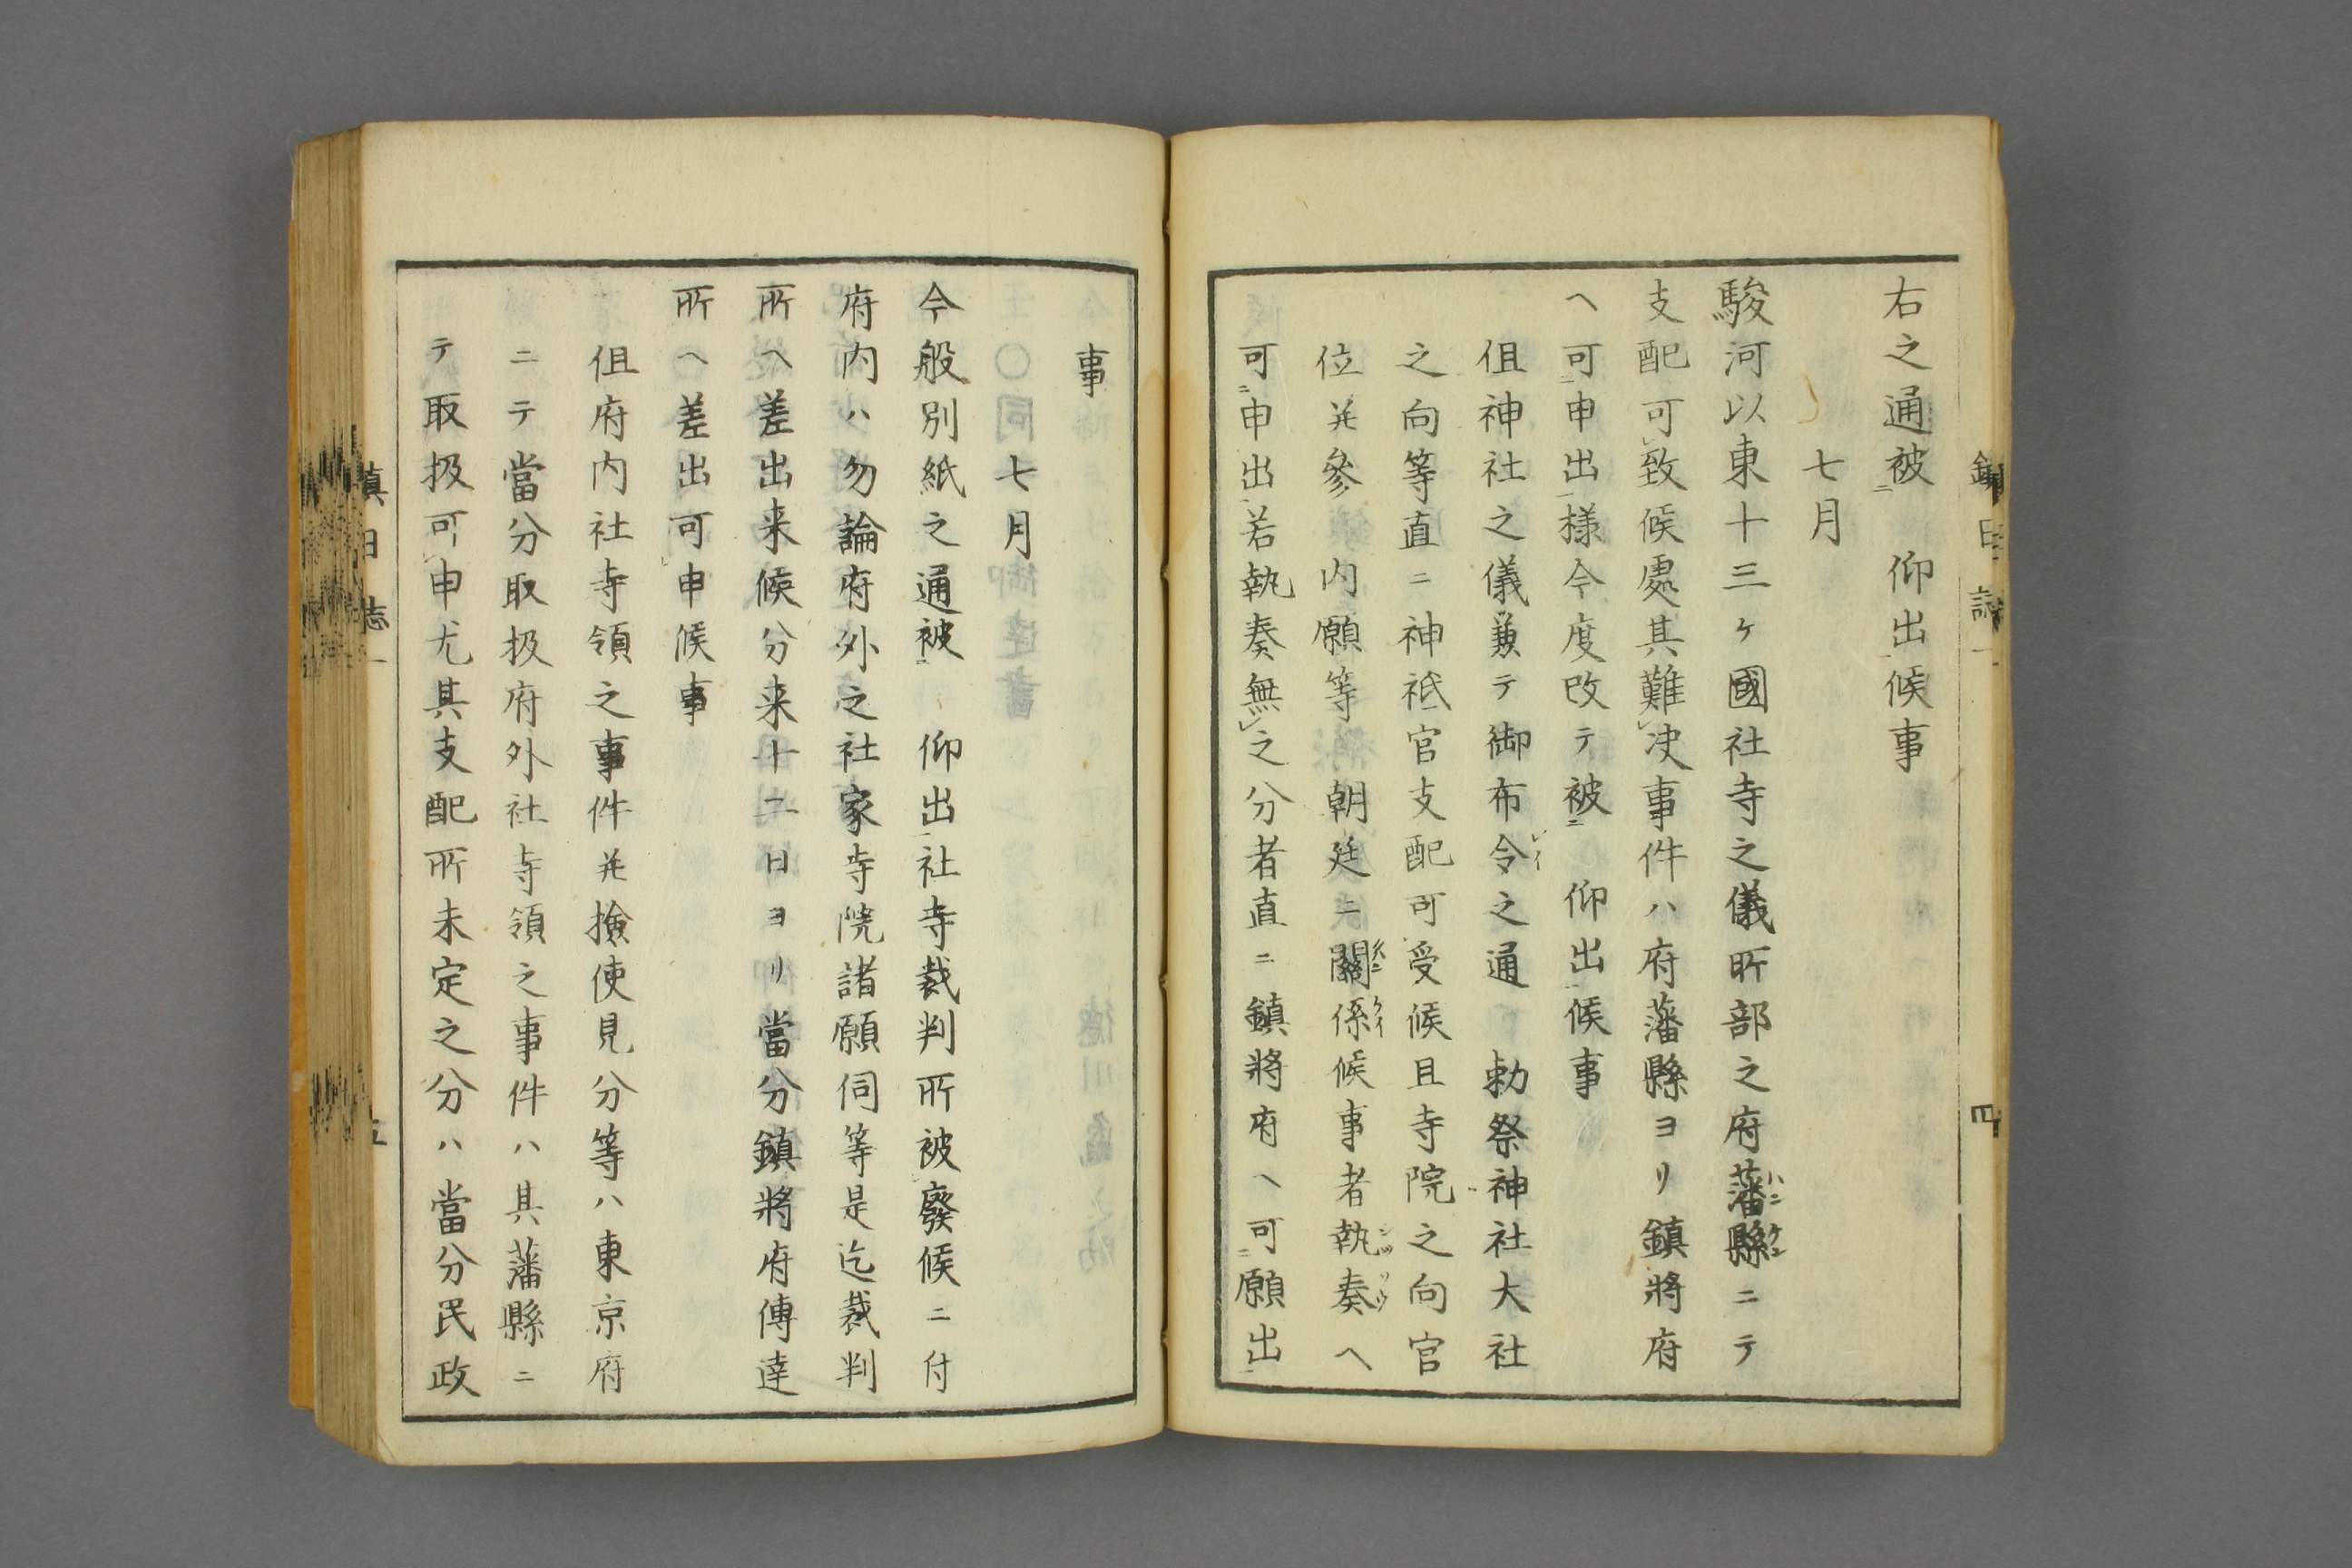 右之通被　仰出候事
七月
駿河以東十三ヶ國社寺之儀所部之府藩縣ニテ
支配可致候處其難决事件ハ府藩縣ヨリ鎮將府
ヘ可申出樣今度改テ被　仰出候事
但神社之儀兼テ御布令之通　勅祭神社大社
之向等直ニ神祇官支配可受候且寺院之向官
位並參　内願等　朝廷ニ關係候事者執奏ヘ
可申出若執奏無之分者直ニ鎮將府ヘ可願出
事
七月
今般別紙之通被　仰出社寺裁判所被廢候ニ付
府内ハ勿論府外之社家寺院諸願伺等是迄裁判
所ヘ差出来候分来十二日ヨリ當分鎮將府傳達
所ヘ差出可申候事
但府内社寺領之事件並撿使見分等ハ東京府
ニテ當分取扱府外社寺領之事件ハ其藩縣ニ
テ取扱可申尤其支配所未定之分ハ當分民政